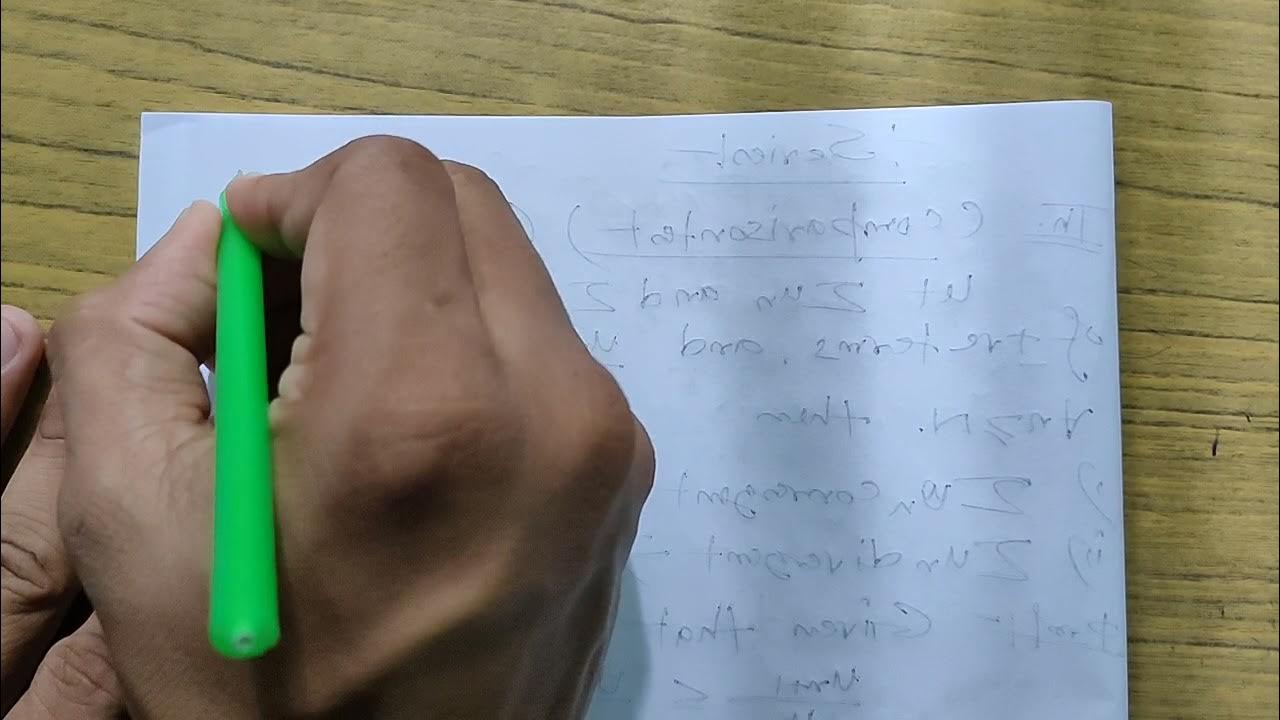 Series:-
Th. (Comparison test) (
Let Σuₙ and Σ
of +ve terms. and u
∀n≥N. then
i) Σvₙ convergent
ii) Σuₙ divergent
Given that
uₙ₊₁ <